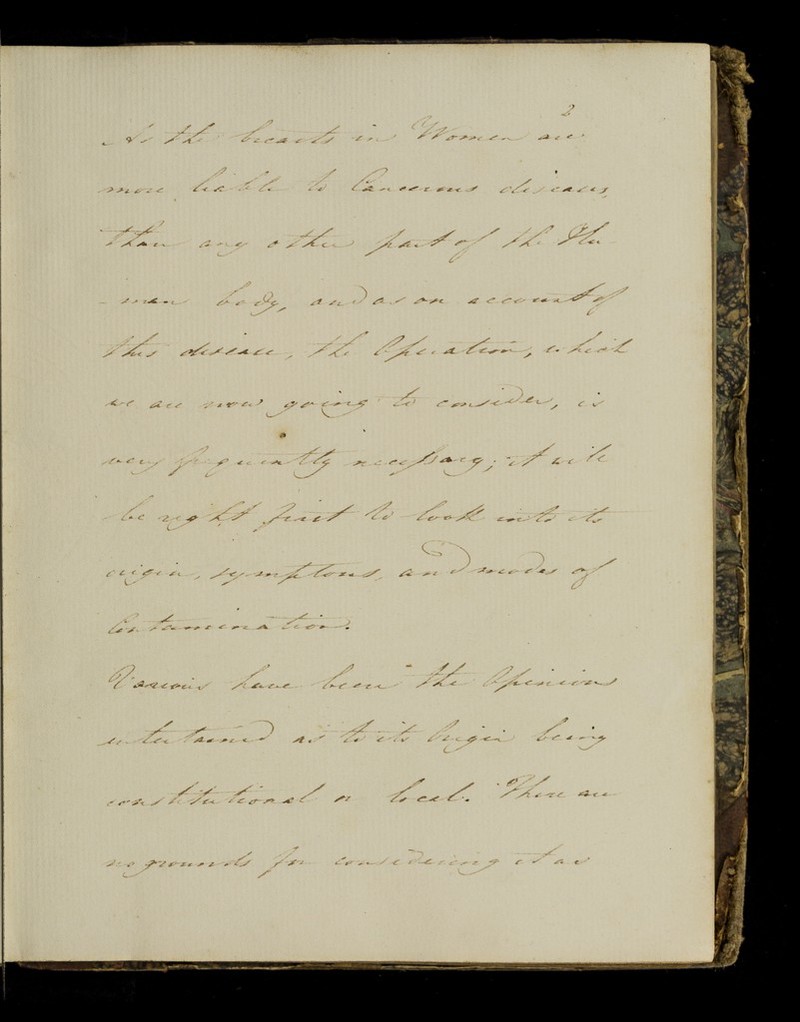 2
As the breasts in Women are
more liable to Cancerous diseases,
than any other part of the Hu-
-man body, and as on account of
this disease, the Operation, which
we are now going to consider, is
very frequently necessary; it will
be right first to look into its
origin, symptoms, and modes of
Contamination.
Various have been the Opinions
entertained as to its Origin being
constitutional or local. There are
no grounds for considering it as